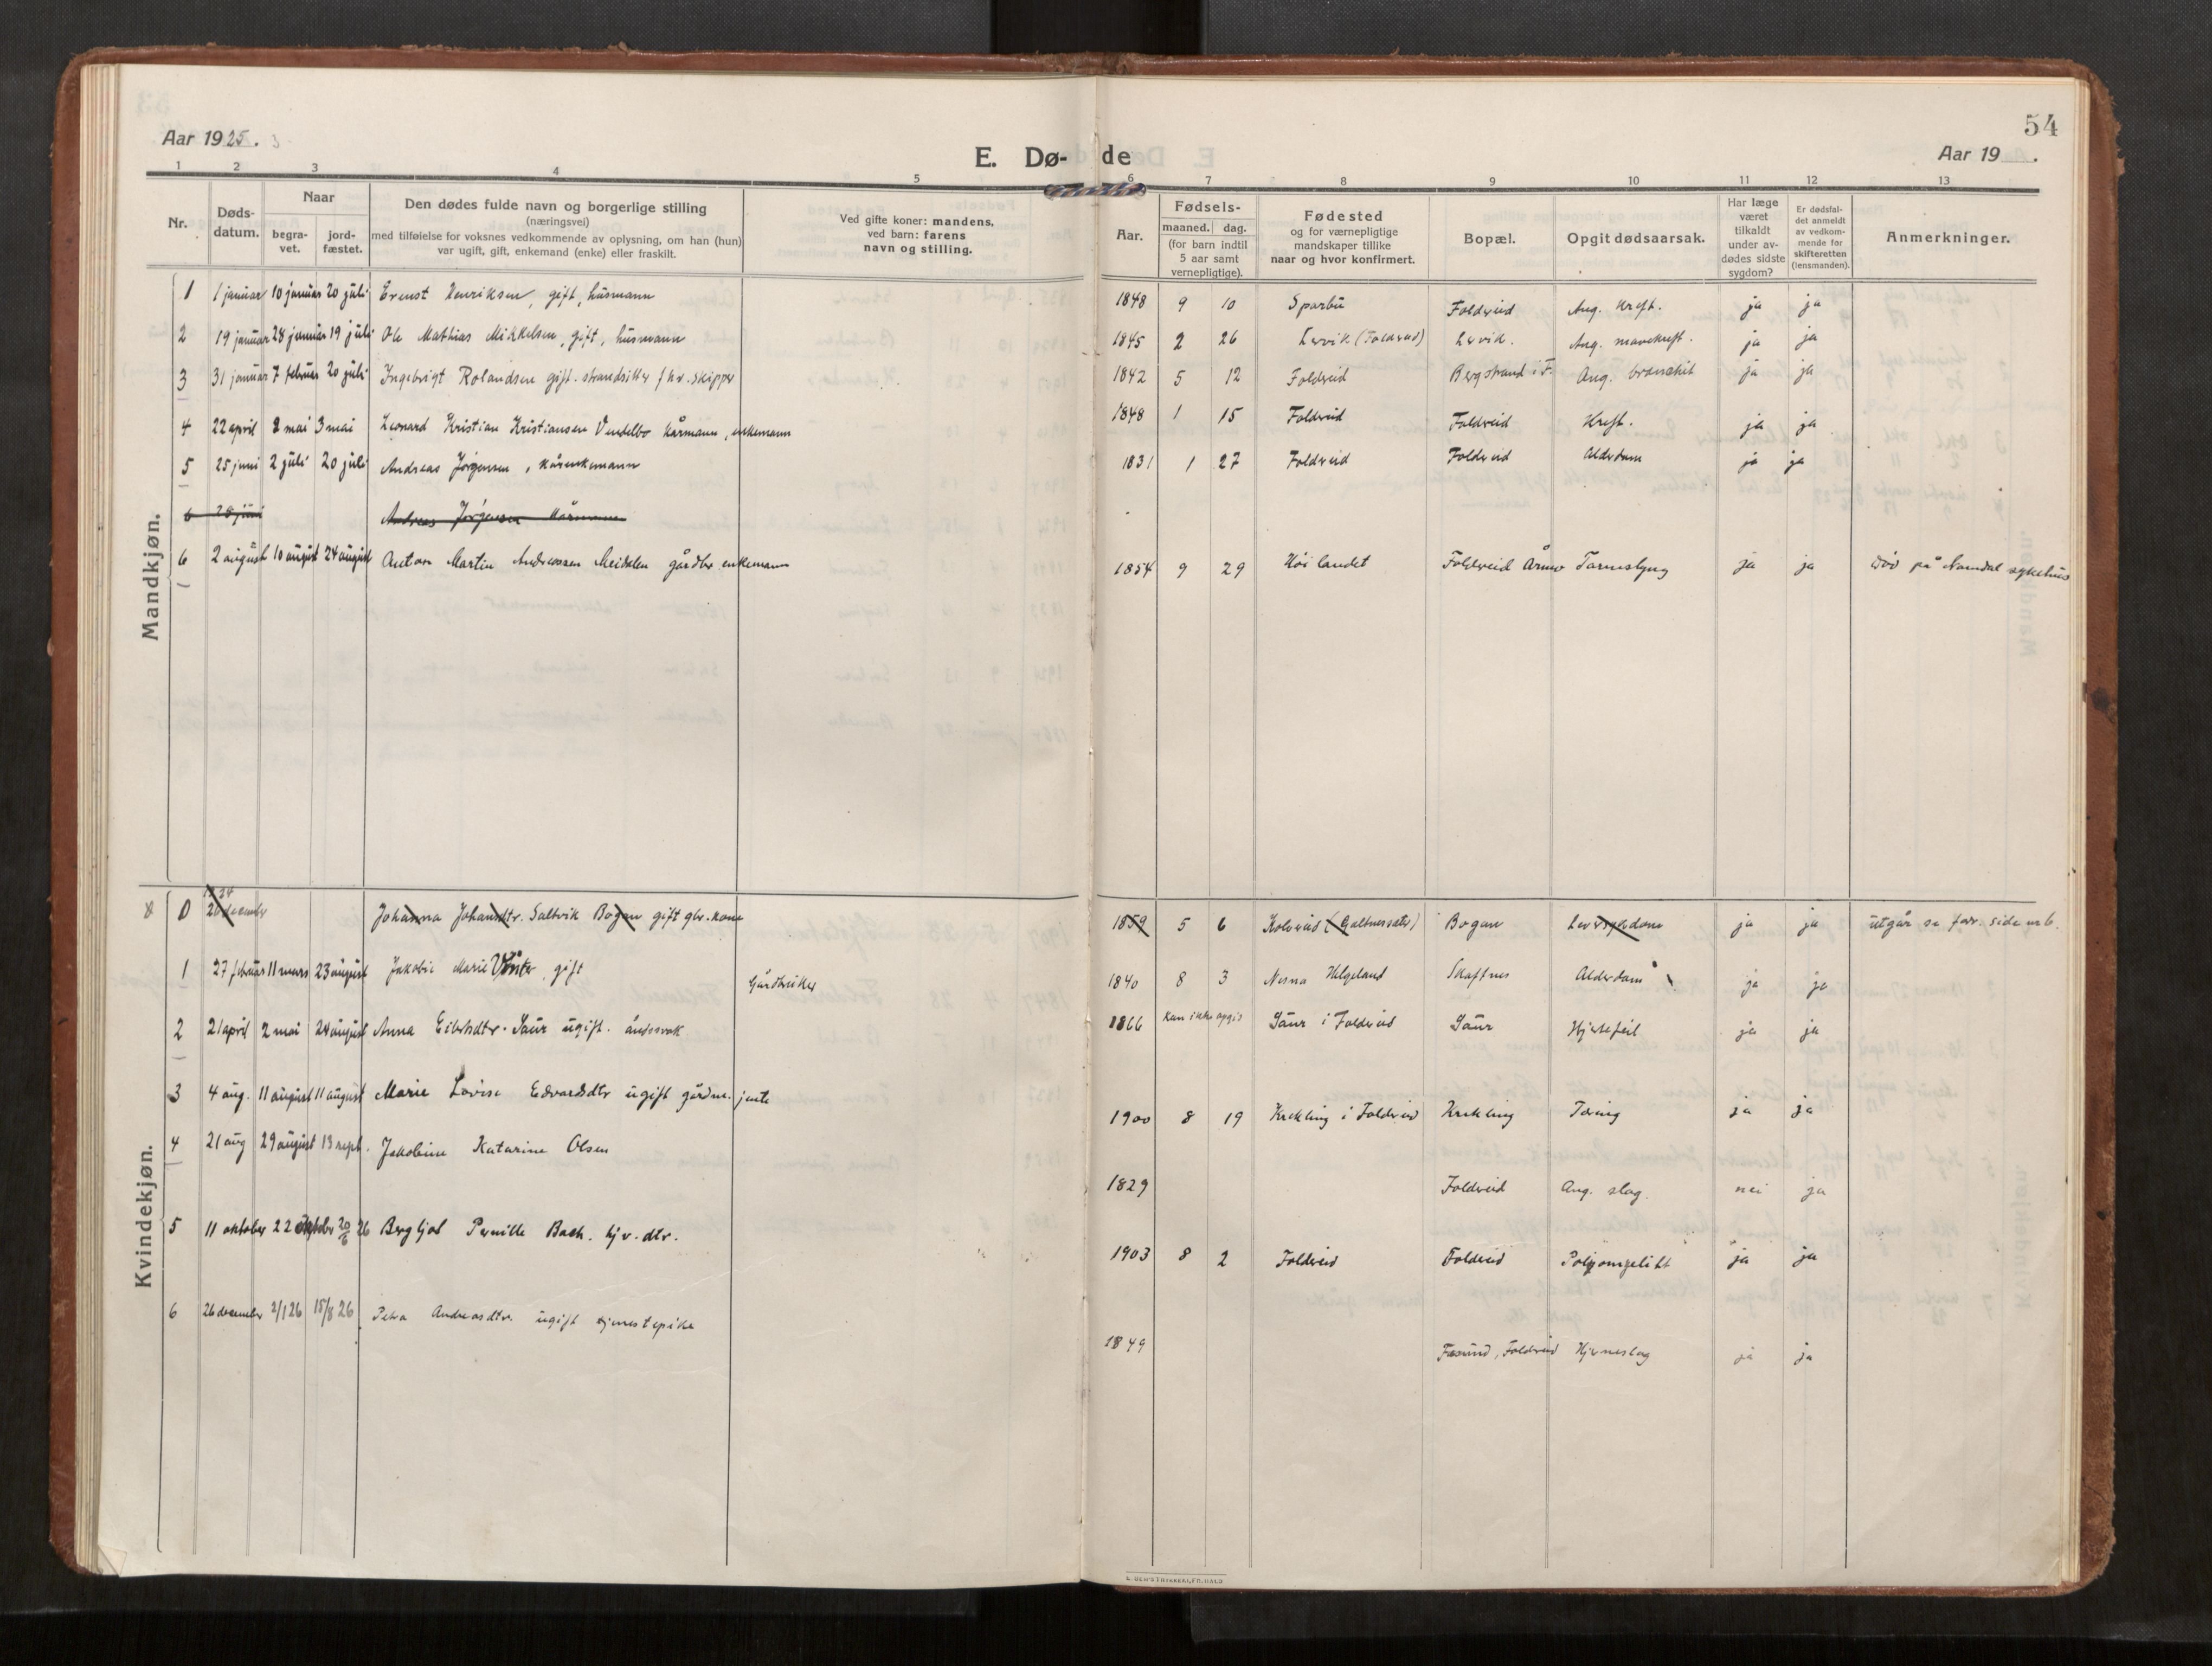 54
Aar 1925.
E. Dø- de
Aar 19 .
1 2 3 4 5 6 7 8 9 10 11 12 13
Nr.
Døds-
datum.
Naar
begra-
vet.
jord-
fæstet.
Den dødes fulde navn og borgerlige stilling
(næringsvei)
med tilføielse for voksnes vedkommende av oplysning, om han (hun)
var ugift, gift, enkemand (enke) eller fraskilt.
Ved gifte koner: mandens,
ved barn: farens
navn og stilling.
Aar.
Fødsels-
maaned. dag.
(for barn indtil
5 aar samt
vernepligtige).
Fødested
og for værnepligtige
mandskaper tillike
naar og hvor konfirmert.
Bopæl.
Opgit dødsaarsak.
Har læge
været
tilkaldt
under av-
dødes sidste
sygdom?
Er dødsfal-
det anmeldt
av vedkom-
mende for
skifteretten
(lensmanden).
Anmerkninger.
Mandkjøn.
1 1 januar 10 januar 20 juli Ernst Henriksen, gift, husmann 1848 9 10 Sparbu Foldereid Ang. kreft. ja ja
2 19 januar 28 januar 19 juli Ole Mathias Mikkelsen, gift, husmann 1845 2 26 Lervik (Foldereid) Lervik. Ang. mavekreft. ja ja
3 31 januar 7 februar 20 juli Ingebrigt Rolandsen gift. strandsitter fhv. skipper 1842 5 12 Foldereid Bergstrand i F. Ang. bronchit ja ja
4 22 april 2 mai 3 mai Leonard Kristian Kristiansen Vendelbo kårmann, enkemann 1848 1 15 Foldereid Foldereid Kreft. ja ja
5 25 juni 2 juli 20 juli Andreas Jørgensen, kårenkemann 1831 1 27 Foldereid Foldereid Alderdom ja ja
6 28 juni Andreas Jørgensen kårmann
6 2 august 10 august 24 august Anton Martin Andreassen Meidalen gårdbr. enkemann 1854 9 29 Høilandet Foldereid Årmo Tarmslyng ja ja død på Namdal sykehus
Kvindekjøn.
0 1924
26 december Johanna Johansdtr. Saltvik Bogan gift gbr. kone 1859 5 6 Kolvereid (Galtnessæter) Bogan Leversykdom ja ja utgår se forr. side nr 6.
1 27 februar 11 mars 23 august Jakobie Marie gift Gårdbruker 1840 8 3 Nesna Helgeland Skaftnes Alderdom ja ja
2 21 april 2 mai 24 august Anna Eilertsdtr. Saur ugift. åndssvak 1866 kan ikke opgis Saur i Foldereid Saur Hjertefeil ja ja
3 4 aug. 11 august 11 august Marie Lovise Edvardsdtr ugift gårdm. jente 1900 8 19 Krekling i Foldereid Krekling Tæring ja ja
4 21 aug 29 august 13 sept. Jakobine Katarine Olsen 1829 Foldereid Ang. slag. nei ja
5 11 oktober 22 oktober 20/6 26 Bergljot Pernille Bach. hjv. dtr. 1903 8 2 Foldereid Foldereid ja ja
6 26 desember 2/1 26 15/8 26 Petra Andreasdtr. ugift tjenestepike 1849 Foldereid Hjerneslag ja ja